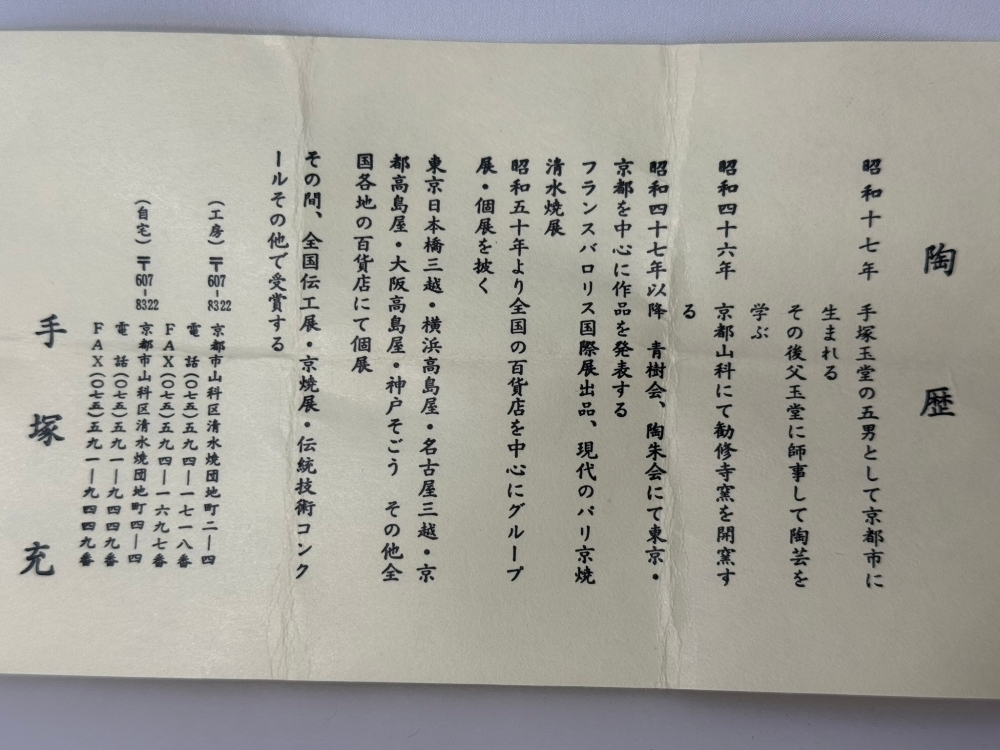 陶歴
昭和十七年 手塚玉堂の五男として京都市に
生まれる
その後父玉堂に師事して陶芸を
学ぶ
昭和四十六年 京都山科にて勧修寺窯を開窯す
る
昭和四十七年以降 青樹会、陶朱会にて東京・
京都を中心に作品を発表する
フランスバロリス国際展出品、現代のパリ京焼
清水焼展
昭和五十年より全国の百貨店を中心にグループ
展・個展を披く
東京日本橋三越・横浜高島屋・名古屋三越・京
都高島屋・大阪高島屋・神戸そごう その他全
国各地の百貨店にて個展
その間、全国伝工展・京焼展・伝統技術コンク
ールその他で受賞する
（工房）〒607-8322 京都市山科区清水焼団地町二―四
電話（〇七五）五九四―一七一八番
FAX（〇七五）五九四―一六九七番
（自宅）〒607-8322 京都市山科区清水焼団地町四―四
電話（〇七五）五九一―九四四九番
FAX（〇七五）五九一―九四四九番
手塚充